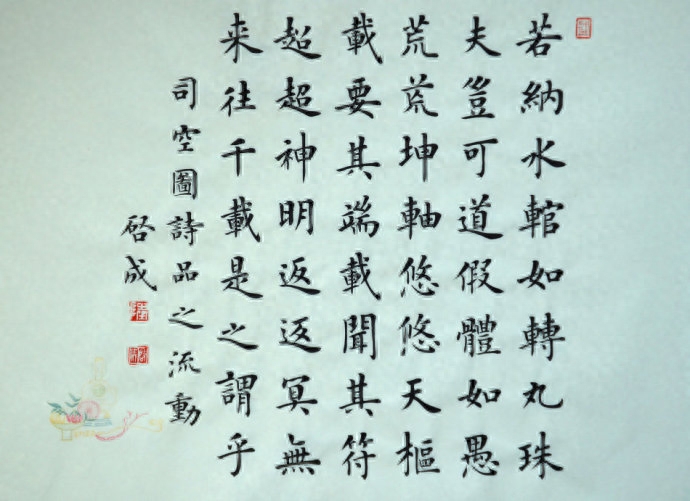 若納水輨如轉丸珠
夫豈可道假體如愚
荒荒坤軸悠悠天樞
載要其端載聞其符
超超神明返返冥無
来往千載是之謂乎
司空圖詩品之流動
啓成